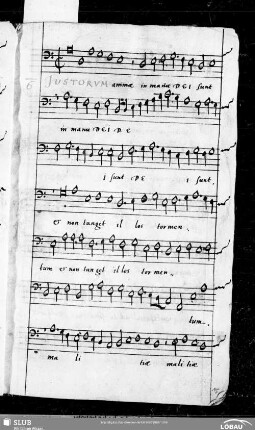 6
IUSTORUM animæ in manu DEI sunt
in manu DEI DE
I sunt DE I sunt,
et non tanget il los tormen,
tum et non tanget illos tormen,
tum,
ma li tiæ malitiæ
SLUB
LÖBAU